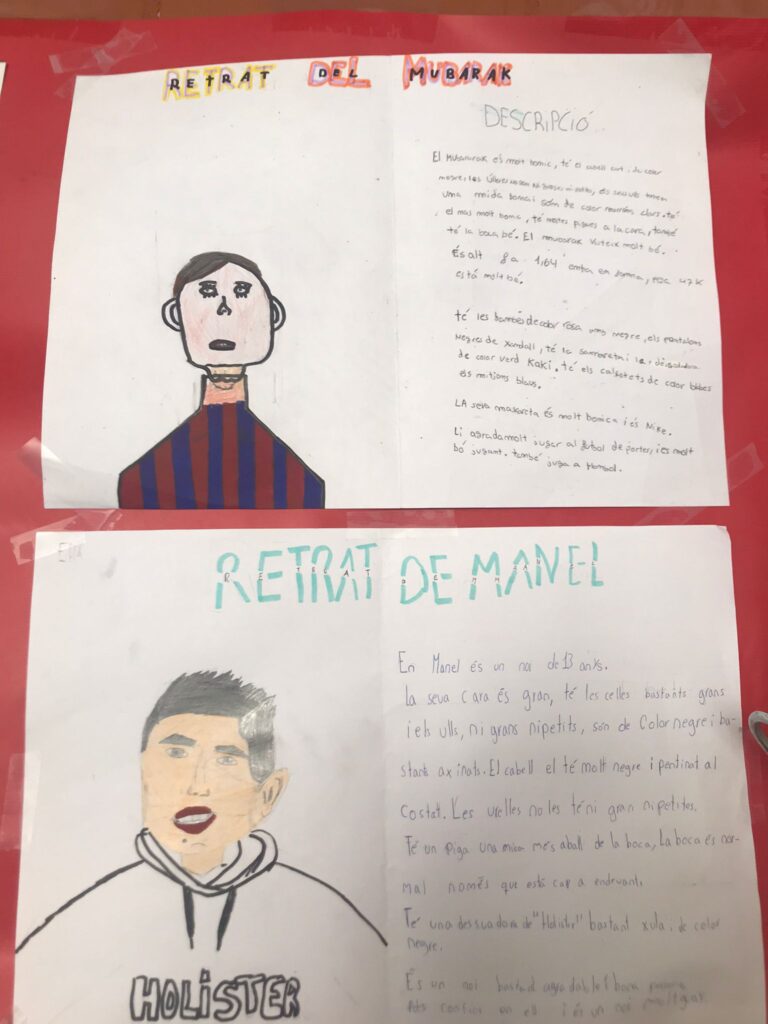 RETRAT DEL MUBARAK
DESCRIPCIÓ
El Mubarak és molt bonic, té el cabell curt i de color
negre, les Úlleres no són ni grosses ni petites, els seus ulls tenen
una mida bona i són de color marrons clars. té
el nas molt bona, té moltes pigues a la cara, també
té la boca bé. El mubarak Visteix molt bé.
És alt fa 1,64 amba en Somma, 47K
està molt bé.
té les bambes de color rosa amb negre, els pantalons
negres de Xandall, té la samarreta i la dessuadora
de color verd Kaki. té els calçotets de color blaus
els mitjons blaus.
LA seva mascareta és molt bonica i és Nike.
Li agrada molt jugar al futbol de portes, i es molt
bó jugant. també juga a Handbol.
RETRAT DE MANEL
RETRAT DE MANEL
En Manel és un noi de 13 anys.
la seva Cara és gran, té les celles bastants grans
i els ulls, ni grans nipetits, són de Color negre i ba-
stant axinats. El cabell el té molt negre i pentinat al
Costat. Les urelles no les té ni gran ni petites.
Té un piga una mica més aball de la boca, La boca és nor-
mal només que està cap a endevant.
Té una dessuadora de "Holister" bastant xula i de color
negre.
És un noi bastant agradable i boca
pots confiar en ell i és un noi molt
HOLiSTER